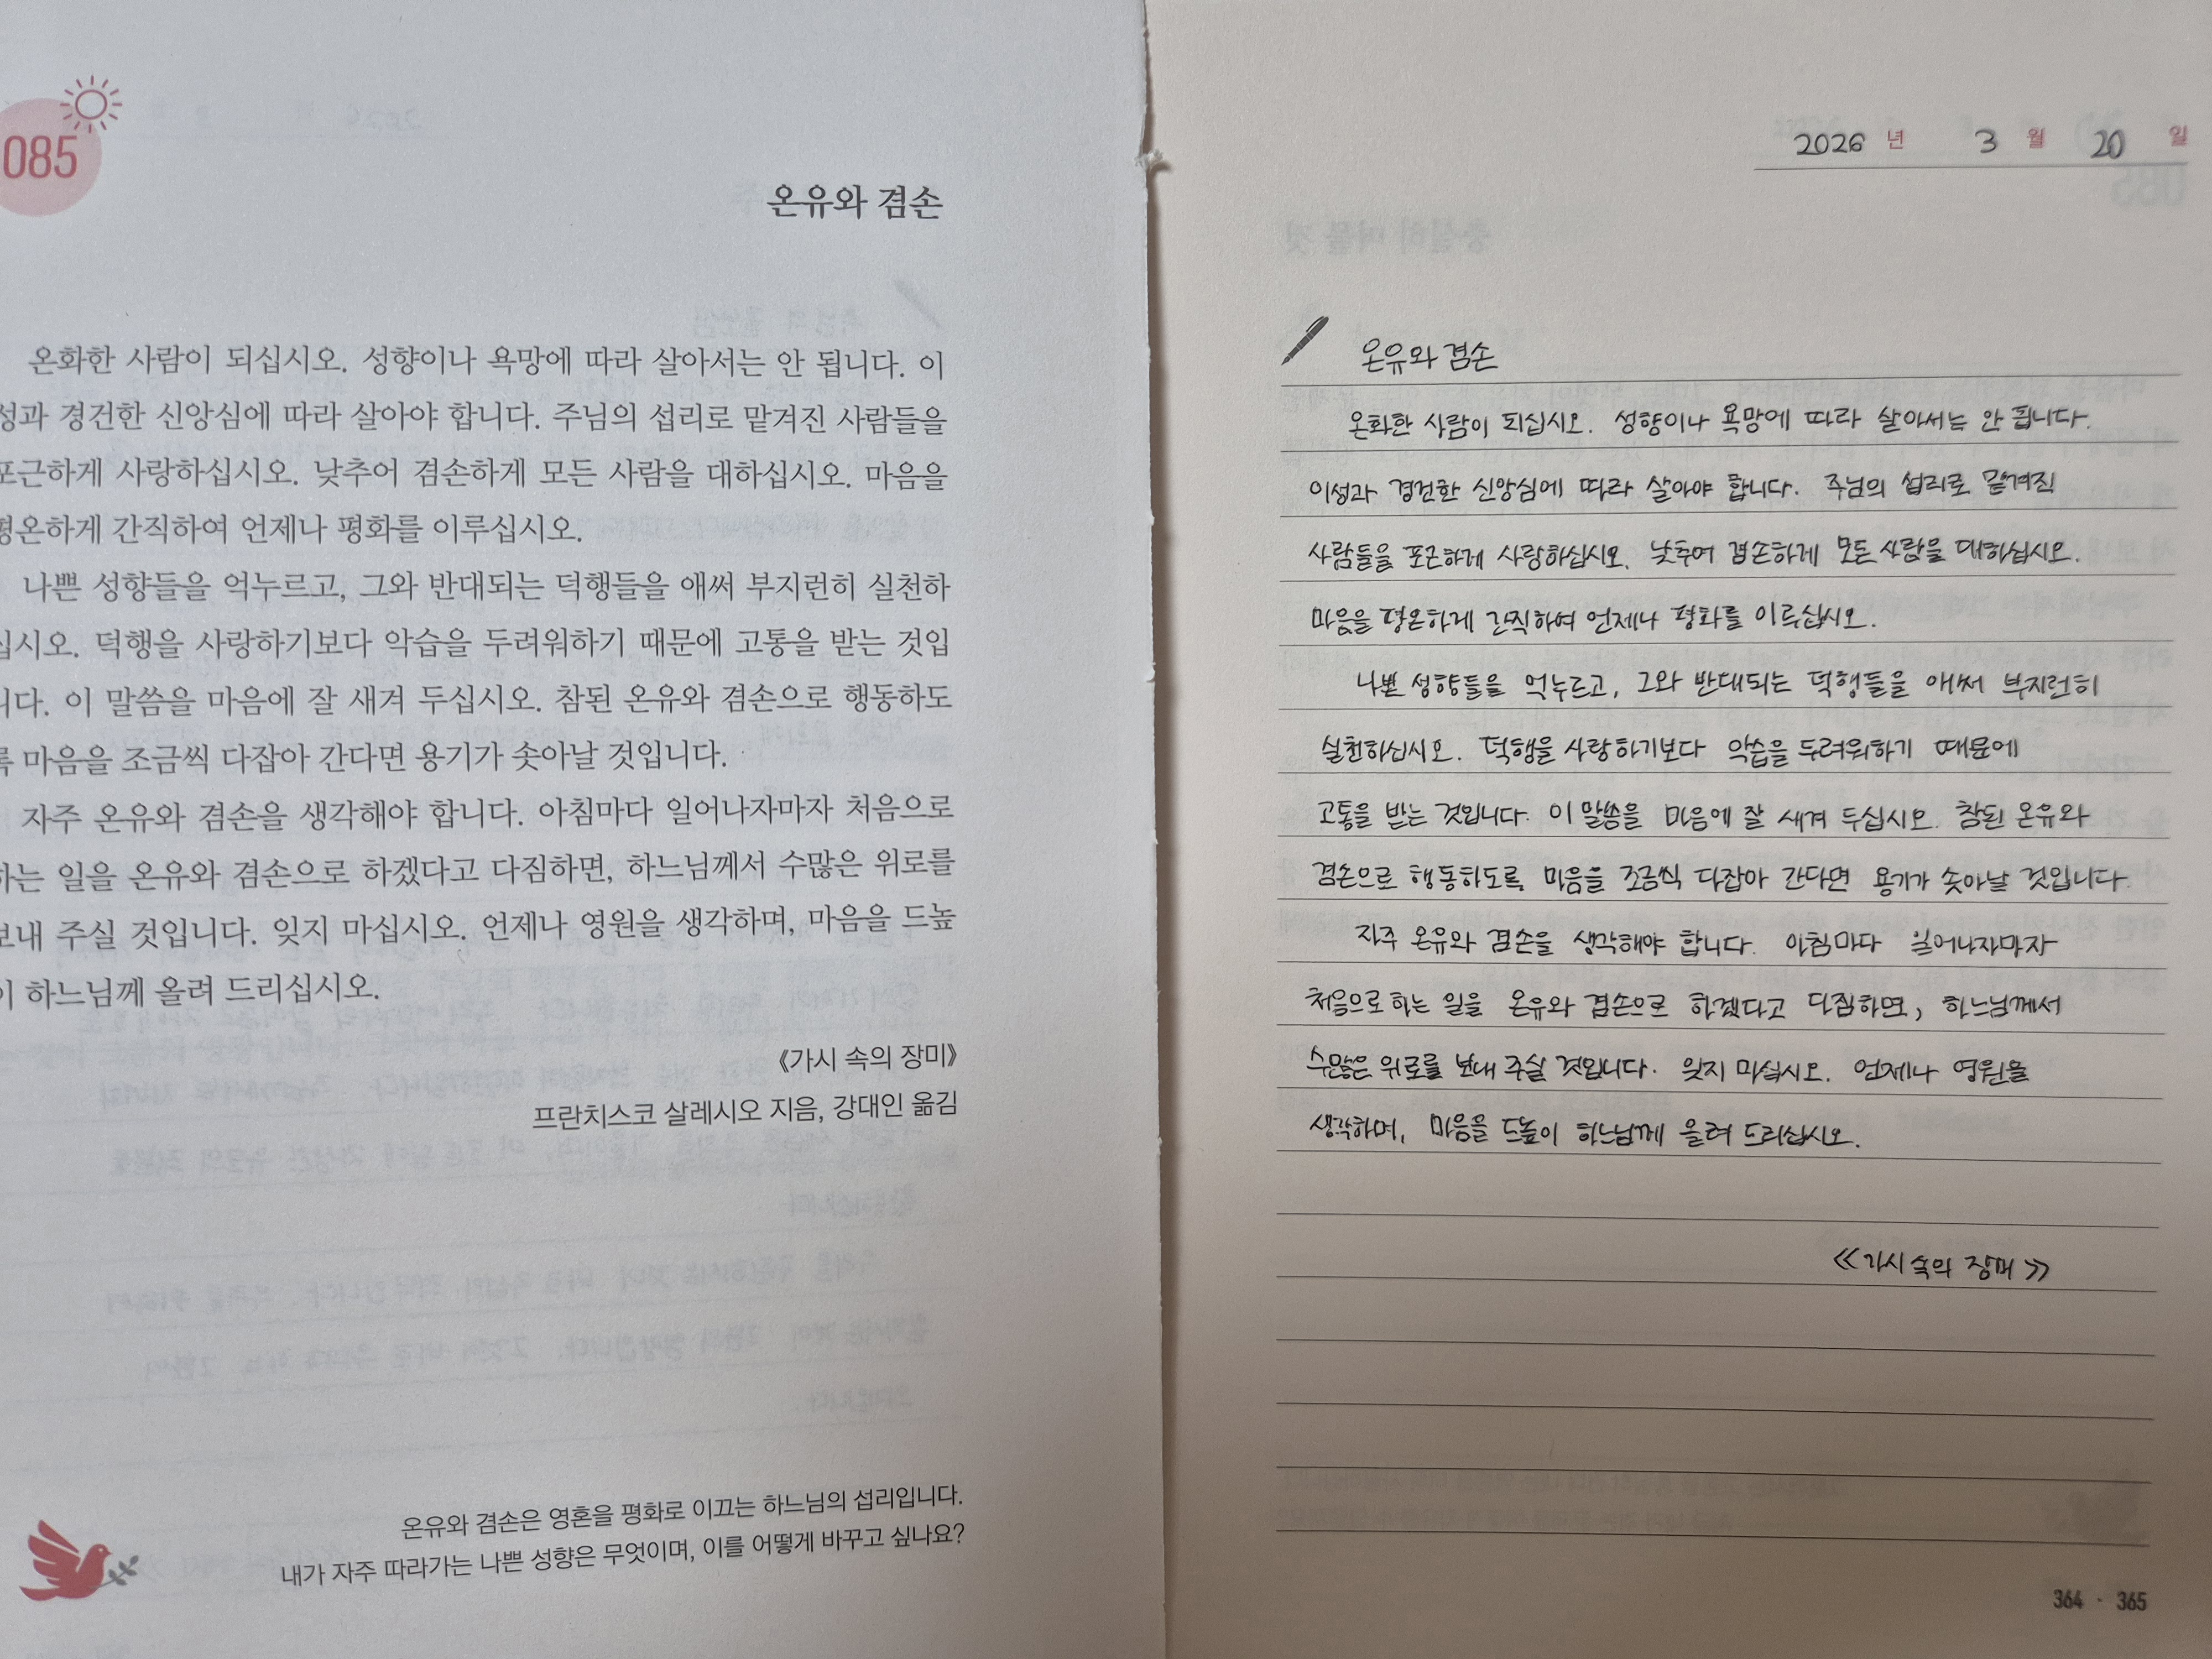 085
온유와 겸손
온화한 사람이 되십시오. 성향이나 욕망에 따라 살아서는 안 됩니다. 이
성과 경건한 신앙심에 따라 살아야 합니다. 주님의 섭리로 맡겨진 사람들을
포근하게 사랑하십시오. 낮추어 겸손하게 모든 사람을 대하십시오. 마음을
평온하게 간직하여 언제나 평화를 이루십시오.
나쁜 성향들을 억누르고, 그와 반대되는 덕행들을 애써 부지런히 실천하
십시오. 덕행을 사랑하기보다 악습을 두려워하기 때문에 고통을 받는 것입
니다. 이 말씀을 마음에 잘 새겨 두십시오. 참된 온유와 겸손으로 행동하도
록 마음을 조금씩 다잡아 간다면 용기가 솟아날 것입니다.
자주 온유와 겸손을 생각해야 합니다. 아침마다 일어나자마자 처음으로
하는 일을 온유와 겸손으로 하겠다고 다짐하면, 하느님께서 수많은 위로를
보내 주실 것입니다. 잊지 마십시오. 언제나 영원을 생각하며, 마음을 드높
이 하느님께 올려 드리십시오.
《가시 속의 장미》
프란치스코 살레시오 지음, 강대인 옮김
온유와 겸손은 영혼을 평화로 이끄는 하느님의 섭리입니다.
내가 자주 따라가는 나쁜 성향은 무엇이며, 이를 어떻게 바꾸고 싶나요?
2026 년 3 월 20 일
온유와 겸손
온화한 사람이 되십시오. 성향이나 욕망에 따라 살아서는 안 됩니다.
이성과 경건한 신앙심에 따라 살아야 합니다. 주님의 섭리로 맡겨진
사람들을 포근하게 사랑하십시오. 낮추어 겸손하게 모든 사람을 대하십시오.
마음을 평온하게 간직하여 언제나 평화를 이루십시오.
나쁜 성향들을 억누르고, 그와 반대되는 덕행들을 애써 부지런히
실천하십시오. 덕행을 사랑하기보다 악습을 두려워하기 때문에
고통을 받는 것입니다. 이 말씀을 마음에 잘 새겨 두십시오. 참된 온유와
겸손으로 행동하도록 마음을 조금씩 다잡아 간다면 용기가 솟아날 것입니다.
자주 온유와 겸손을 생각해야 합니다. 아침마다 일어나자마자
처음으로 하는 일을 온유와 겸손으로 하겠다고 다짐하면, 하느님께서
수많은 위로를 보내 주실 것입니다. 잊지 마십시오. 언제나 영원을
생각하며, 마음을 드높이 하느님께 올려 드리십시오.
《가시 속의 장미》
364 · 365